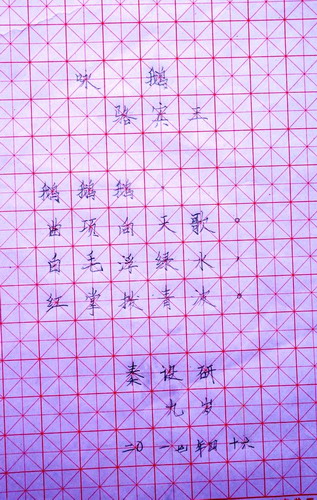 咏鹅
骆宾王
鹅鹅鹅
曲项向天歌。
白毛浮绿水，
红掌拨青波。
秦设研
九岁
二〇一四年四十六